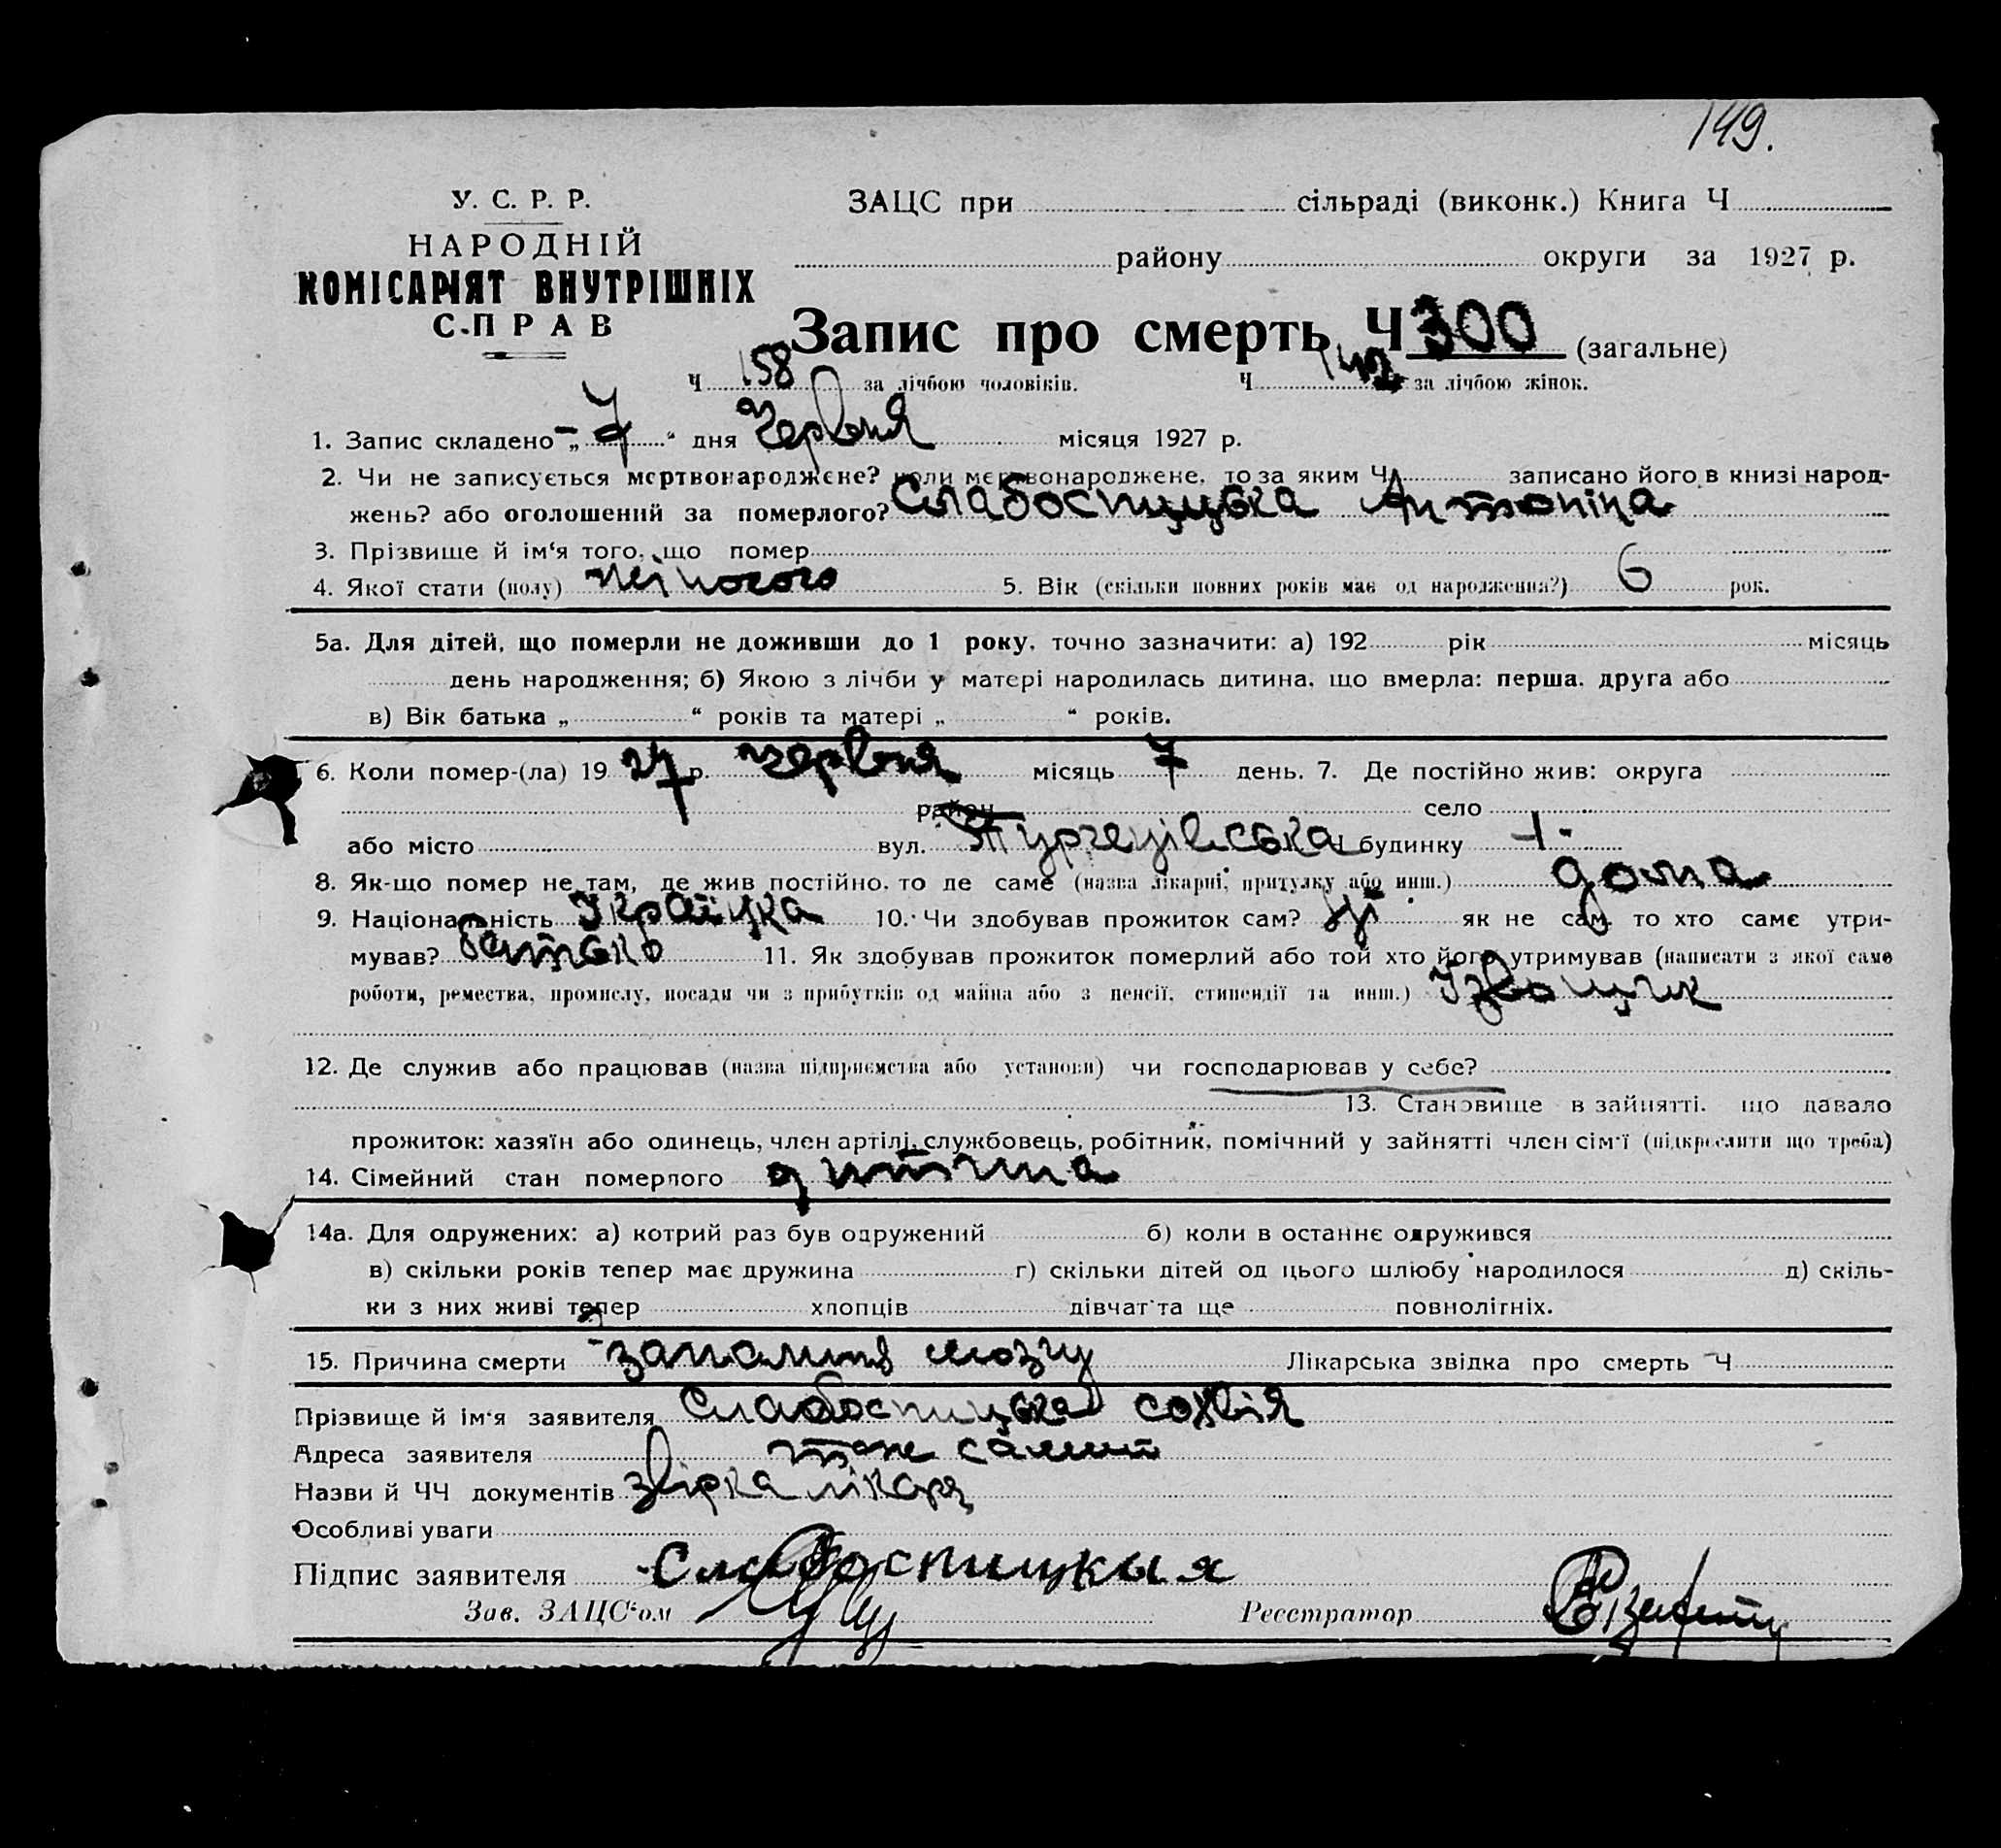 149.
У. С. Р. Р.
НАРОДНІЙ
КОМІСАРІЯТ ВНУТРІШНІХ
СПРАВ
ЗАЦС при сільраді (виконк.) Книга Ч
району округи за 1927 р.
Запис про смерть Ч 300 (загальне)
Ч 158 за лічбою чоловіків. Ч 142 за лічбою жінок.
1. Запис складено „ 7 “ дня Червня місяця 1927 р.
2. Чи не записується мертвонароджене? коли мертвонароджене, то за яким Ч записано його в книзі народ-
жень? або оголошений за померлого? Слабоспицька Антоніна
3. Прізвище й ім‘я того, що помер
4. Якої стати (полу) жіночого 5. Вік (скільки повних років має од народження?) 6 рок.
5а. Для дітей, що померли не доживши до 1 року, точно зазначити: а) 192 рік місяць
день народження; б) Якою з лічби у матері народилась дитина, що вмерла: перша, друга або
в) Вік батька „ “ років та матері „ “ років.
6. Коли помер-(ла) 19 27 р. червня місяць 7 день. 7. Де постійно жив: округа
район село
або місто вул. будинку
8. Як-що помер не там, де жив постійно, то де саме (назва лікарні, притулку або инш.) дома
9. Національність Українка 10. Чи здобував прожиток сам? ні як не сам, то хто саме утри-
мував? батько 11. Як здобував прожиток померлий або той хто його утримував (написати з якої саме
роботи, ремества, промислу, посади чи з прибутків од майна або з пенсії, стипендії та инш.) Ізвощик
12. Де служив або працював (назва підприємства або установи) чи господарював у себе?
13. Становище в зайнятті, що давало
прожиток: хазяїн або одинець, член артілі, службовець, робітник, помічний у зайнятті член сім‘ї (підкреслити що треба)
14. Сімейний стан померлого дитина
14а. Для одружених: а) котрий раз був одружений б) коли в останнє одружився
в) скільки років тепер має дружина г) скільки дітей од цього шлюбу народилося д) скіль-
ки з них живі тепер хлопців дівчат та ще повнолітніх.
15. Причина смерти запалння мозгу Лікарська звідка про смерть Ч
Прізвище й ім‘я заявителя Слабоспицька Софія
Адреса заявителя там самит
Назви й ЧЧ документів звідка лікаря
Особливі уваги
Підпис заявителя Слабоспицкыя
Зав. ЗАЦС‘ом Реєстратор